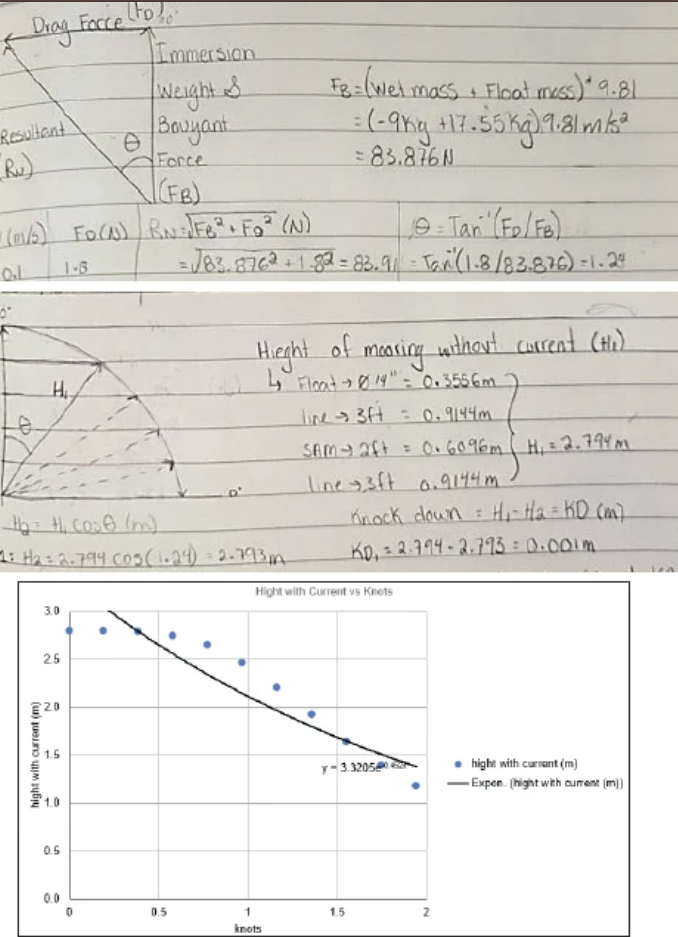 Drag Force (FD)
Immersion
Weight &
Bouyant
Force
(FB)
Resultant
(RN)
θ
FB = (Wet mass + Float mass) * 9.81
= (-9Kg + 17.55Kg) 9.81 m/s²
= 83.876N
(m/s) FD(N) RN = √FB² + FD² (N) θ = Tan⁻¹(FD/FB)
0.1 1.8 = √83.876² + 1.8² = 83.91 = Tan⁻¹(1.8/83.876) = 1.24
0°
H₁
θ
0°
Hieght of mooring without current (H₁)
↳ Float → Ø 14" = 0.3556m
line → 3ft = 0.9144m
SAM → 2ft = 0.6096m H₁ = 2.794m
line → 3ft 0.9144m
H₂ = H₁ cosθ (m)
Knock down = H₁ - H₂ = KD (m)
1: H₂ = 2.794 cos(1.24) = 2.793m
KD₁ = 2.794 - 2.793 = 0.001m
Hight with Current vs Knots
3.0
2.5
2.0
1.5
1.0
0.5
0.0
0 0.5 1 1.5 2
hight with current (m)
knots
y = 3.3205e
hight with current (m)
Expon. (hight with current (m))